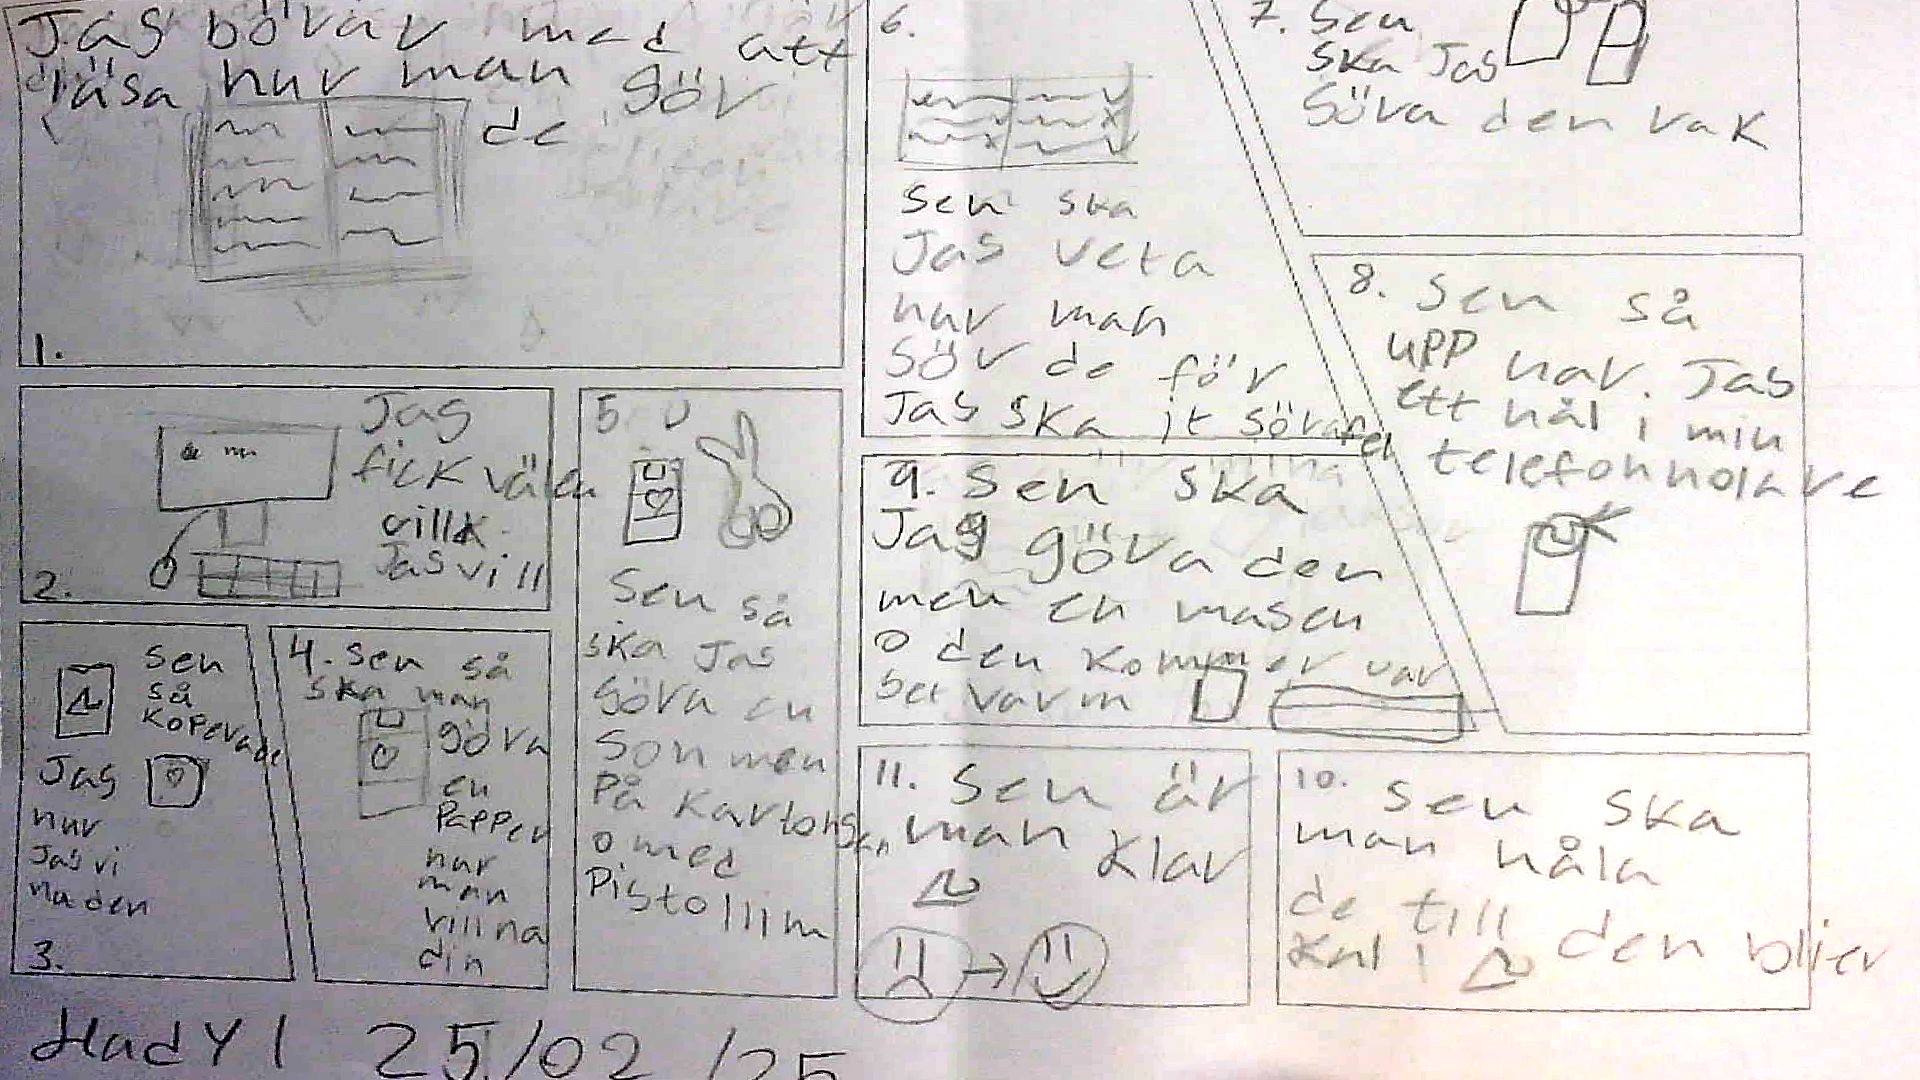 Jag börar med att
läsa hur man gör
de
1.
Jag
fick välja
villk
Jag vill
2.
sen
så
koperade
Jag
hur
Jag vi
ha den
3.
4. sen så
ska man
göra
en
Papper
hur
man
vill ha
din
5.
Sen så
ska Jag
göra en
Som men
På kartongen
o med
Pistollim
6.
sen ska
Jag veta
hur man
gör de för
Jag ska it göra fel
7. Sen
ska Jag
göra den vak
8. Sen så
upp har. Jag
ett hål i min
telefonholare
9. Sen ska
Jag göra den
men en masen
o den kommer var
varm
10. Sen ska
man håla
de till den blier
kal!
11. Sen är
man klar
Hady 1 25/02/25